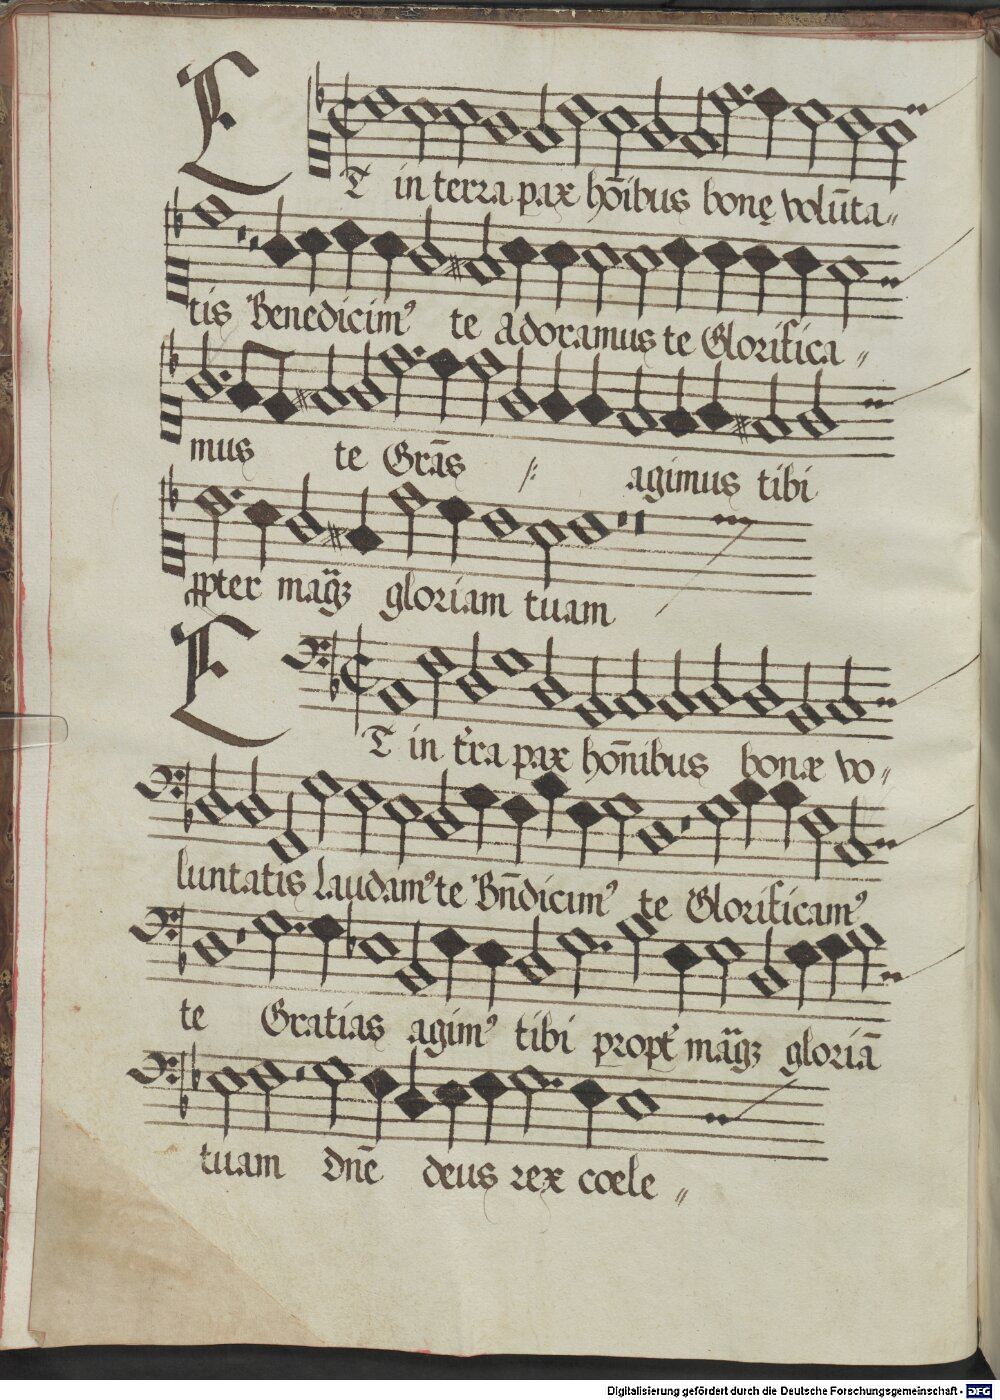 ET in terra pax hōibus bonę volūta〃
tis Benedicim⁹ te adoramus te Glorifica〃
mus te Grās agimus tibi
ꝓpter magꝫ gloriam tuam
ET in tr̄a pax hoñibus bonæ vo〃
luntatis Laudam⁹ te Bn̄dicim⁹ te Glorificam⁹
te Gratias agim⁹ tibi propt̄ magꝫ gloriā
tuam Dn̄e deus rex coele〃
Digitalisierung gefördert durch die Deutsche Forschungsgemeinschaft - DFG